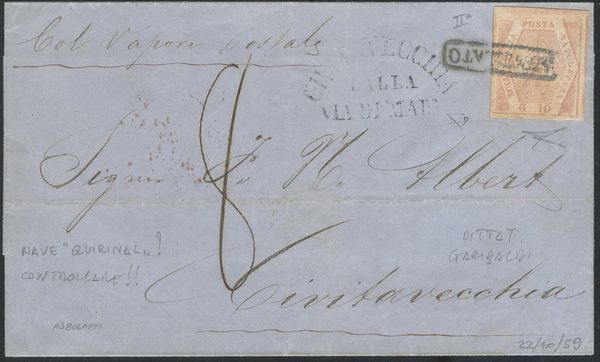 IIª
Col Vapore Postale
POSTA NAPOLETANA
G 10
ANNULLATO
CIVITAVECCHIA
DALLA
VIA DI MARE
8
Signor P. N. Albert
Civitavecchia
NAVE "QUIRINAL"!
CONTROLLARE!!
DITTAT.
GARIBALDI
ASBOLAFFI
22/10/59